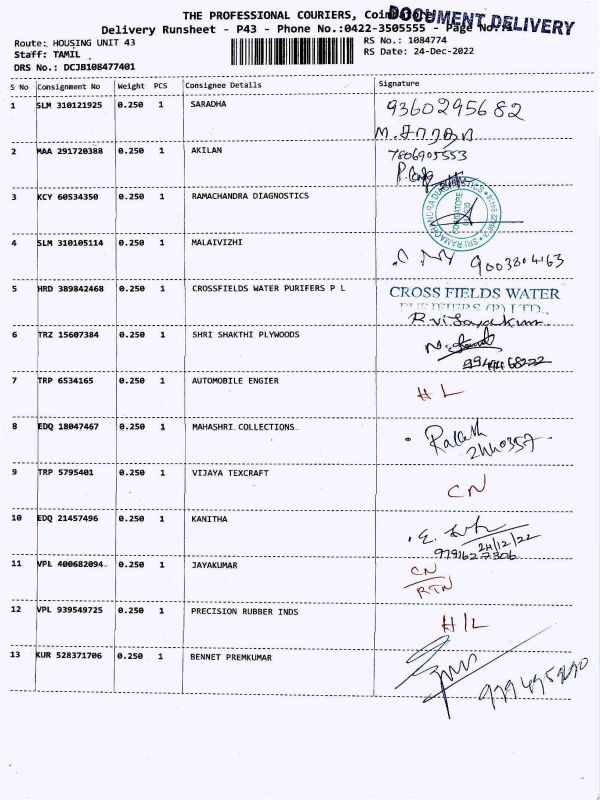 THE PROFESSIONAL COURIERS, Coimbatore
DOCUMENT DELIVERY
Delivery Runsheet - P43 - Phone No.:0422-3505555 - Page No.
Route: HOUSING UNIT 43
RS No.: 1084774
Staff: TAMIL
RS Date: 24-Dec-2022
DRS No.: DCJB108477401
S No Consignment No Weight PCS Consignee Details Signature
1 SLM 310121925 0.250 1 SARADHA 9360295682
M. சாரதா
2 MAA 291720388 0.250 1 AKILAN 7806905553
3 KCY 60534350 0.250 1 RAMACHANDRA DIAGNOSTICS
SRI RAMACHANDRA DIAGNOSTICS
4 SLM 310105114 0.250 1 MALAIVIZHI 9003804163
5 HRD 389842468 0.250 1 CROSSFIELDS WATER PURIFERS P L CROSS FIELDS WATER
PURIFIERS (P) LTD.,
R. Vijayakumar
6 TRZ 15607384 0.250 1 SHRI SHAKTHI PLYWOODS
7 TRP 6534165 0.250 1 AUTOMOBILE ENGIER H L
8 EDQ 18047467 0.250 1 MAHASHRI COLLECTIONS Rakesh
2440357
9 TRP 5795401 0.250 1 VIJAYA TEXCRAFT CN
10 EDQ 21457496 0.250 1 KANITHA
24/12/22
9791627306
11 VPL 400682094 0.250 1 JAYAKUMAR CN
RTN
12 VPL 939549725 0.250 1 PRECISION RUBBER INDS H/L
13 KUR 528371706 0.250 1 BENNET PREMKUMAR